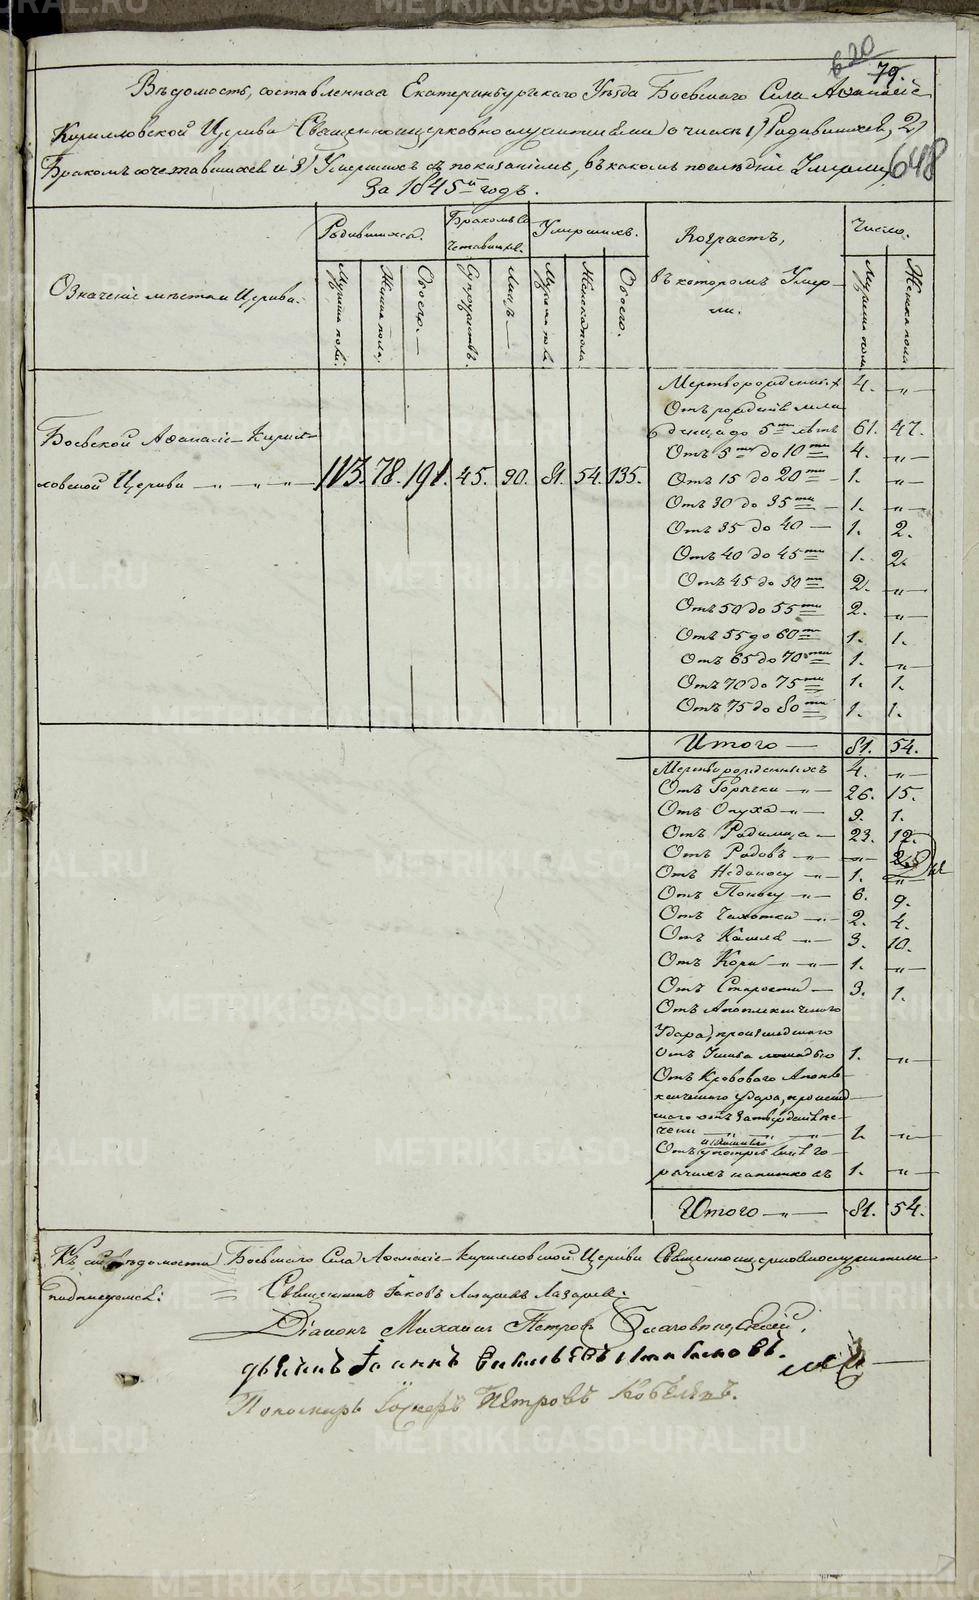 620
79.
Вѣдомость, составленная Екатеринбургскаго Уѣзда Боевскаго Села Аѳанасіе
Кирилловской Церкви Священноцерковнослужителями о числѣ 1) Родившихся, 2)
Бракомъ сочетавшихся и 3) Умершихъ съ показаніемъ, въ какомъ послѣдніе Умерли,
648
за 1845й годъ.
Означеніе мѣста и Церкви.
Родившихся.
Бракомъ Со
четавшихся.
Умершихъ.
Возрастъ,
въ которомъ Умер-
ли.
Число.
Мужеска пола.
Женска пола.
Обоего.
Супружествъ.
Лицъ.
Мужеска пола.
Женска пола.
Обоего.
Мужеска пола.
Женска пола.
Боевской Аѳанасіе-Кирил-
ловской Церкви — „ — „ — „ — 113. 78. 191. 45. 90. 81. 54. 135.
Мертворожденныхъ 4. „
Отъ рожденія мла
денца до 5ти лѣтъ 61. 47.
Отъ 5ти до 10ти 4. „
Отъ 15 до 20ти 1. „
Отъ 30 до 35ти 1. „
Отъ 35 до 40 — 1. 2.
Отъ 40 до 45ти 1. 2.
Отъ 45 до 50ти 2. „
Отъ 50 до 55ти 2. „
Отъ 55 до 60ти 1. 1.
Отъ 65 до 70ти 1. „
Отъ 70 до 75ти 1. 1.
Отъ 75 до 80ти 1. 1.
Итого — 81. 54.
Мертворожденныхъ 4. „
Отъ Горячки — „ — 26. 15.
Отъ Опуха — „ — 9. 1.
Отъ Родимца — 23. 12.
Отъ Родовъ — „ — „ 2.
Отъ Недоносу — „ — 1. „
Отъ Поносу — „ — 6. 9.
Отъ Чахотки — „ — 2. 4.
Отъ Кашля — „ — 3. 10.
Отъ Кори — „ — „ — 1. „
Отъ Старости — 3. 1.
Отъ Апоплексичнаго
Удара, происшедшаго
отъ Ушиба лошадью 1. „
Отъ Кроваваго Апопле-
ксичнаго удара, происшед
шаго отъ затвердѣнія пе-
чени — „ — „ — 1. „
излишняго
Отъ употребленія го-
рячихъ напитковъ 1. „
Итого — „ — 81. 54.
Къ сей вѣдомости Боевскаго Села Аѳанасіе-Кирилловской Церкви Священноцерковнослужители
подписуемся: Священникъ Іаковъ Лазаревъ.
Діаконъ Михаилъ Петровъ
дьячекъ Іоаннъ Васильевъ
Пономарь Петровъ Кобелевъ.
METRIKI.GASO-URAL.RU